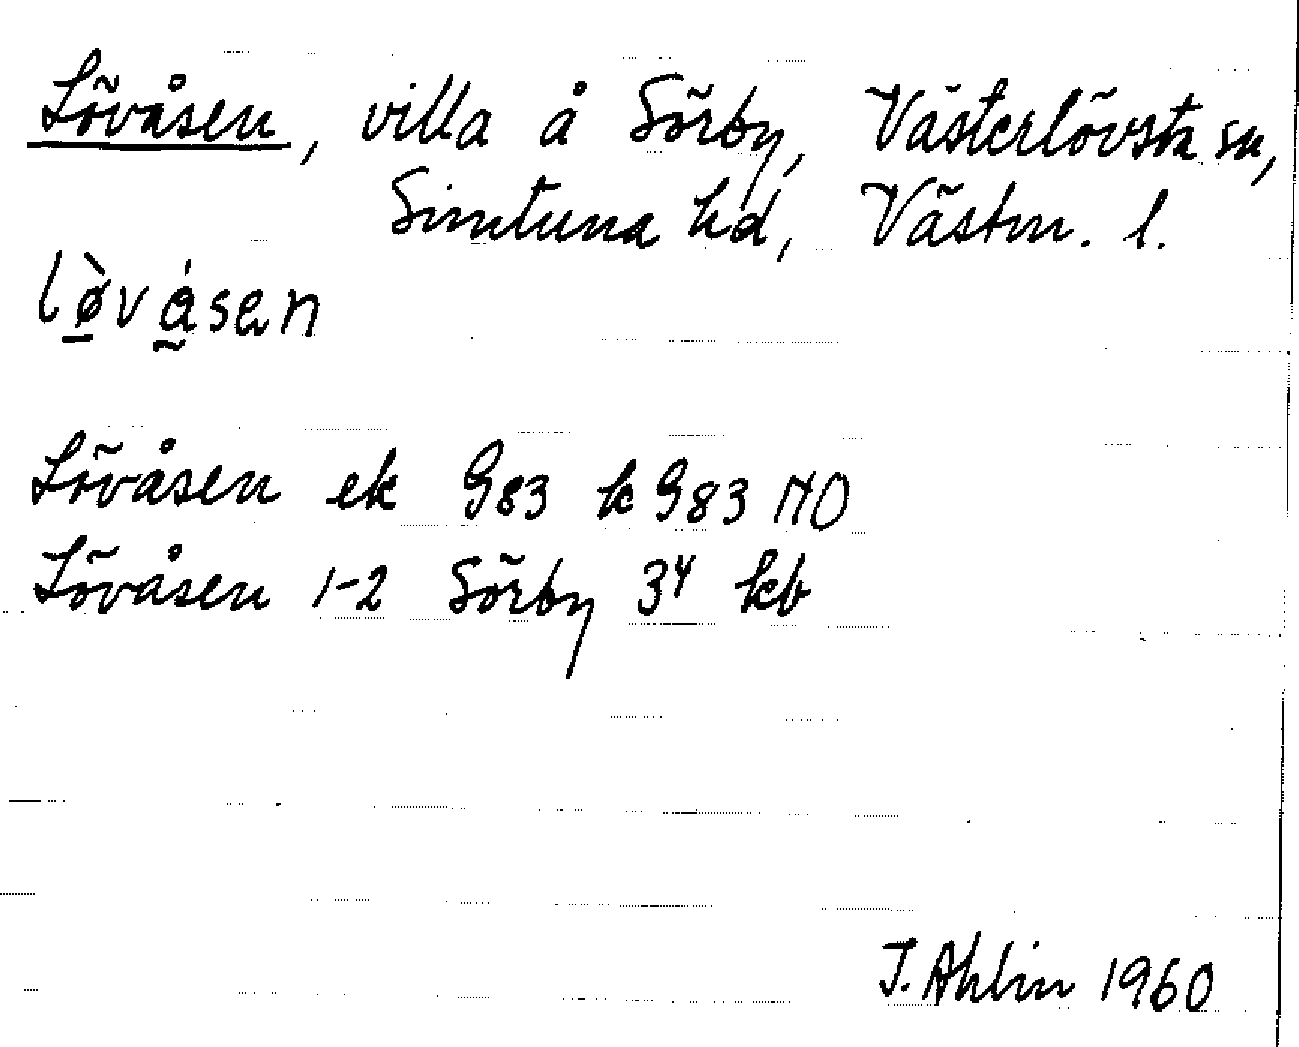 Lövåsen, villa å Sörby, Västerlövsta sn,
Simtuna hd, Västm. l.
lø̀våsen
Lövåsen ek G83 k G83 NO
Lövåsen 1-2 Sörby 3⁴ kb
I. Ahlin 1960